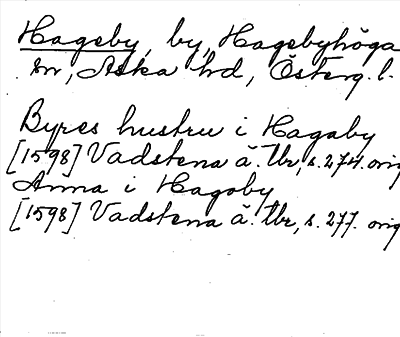 Hageby, by, Hagebyhöga
sn, Aska hd, Österg. l.
Byres hustru i Hagaby
[1598] Vadstena ä. tbr, s. 274. orig
Anna i Hagoby
[1598] Vadstena ä. tbr, s. 277. orig